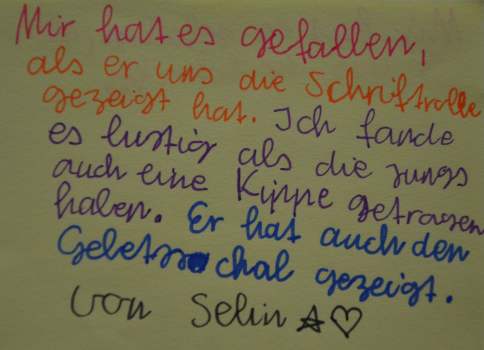 Mir hat es gefallen,
als er uns die Schriftrolle
gezeigt hat. Ich fande
es lustig als die jungs
auch eine Kippe getragen
haben. Er hat auch den
Gebetsschal gezeigt.
von Selin